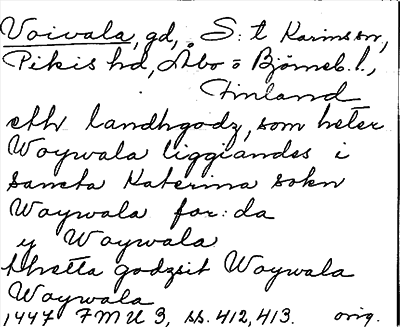 Voivala, gd, S:t Karins sn,
Pikis hd, Åbo o Björneb. l.,
Finland
etth landhgodz, som heter
Woywala liggiandes i
sancta Katerina sokn
Woywala for:da
y Woywala
thetta godzsit Woywala
Woywala
1447 FMU 3, ss. 412, 413. orig.